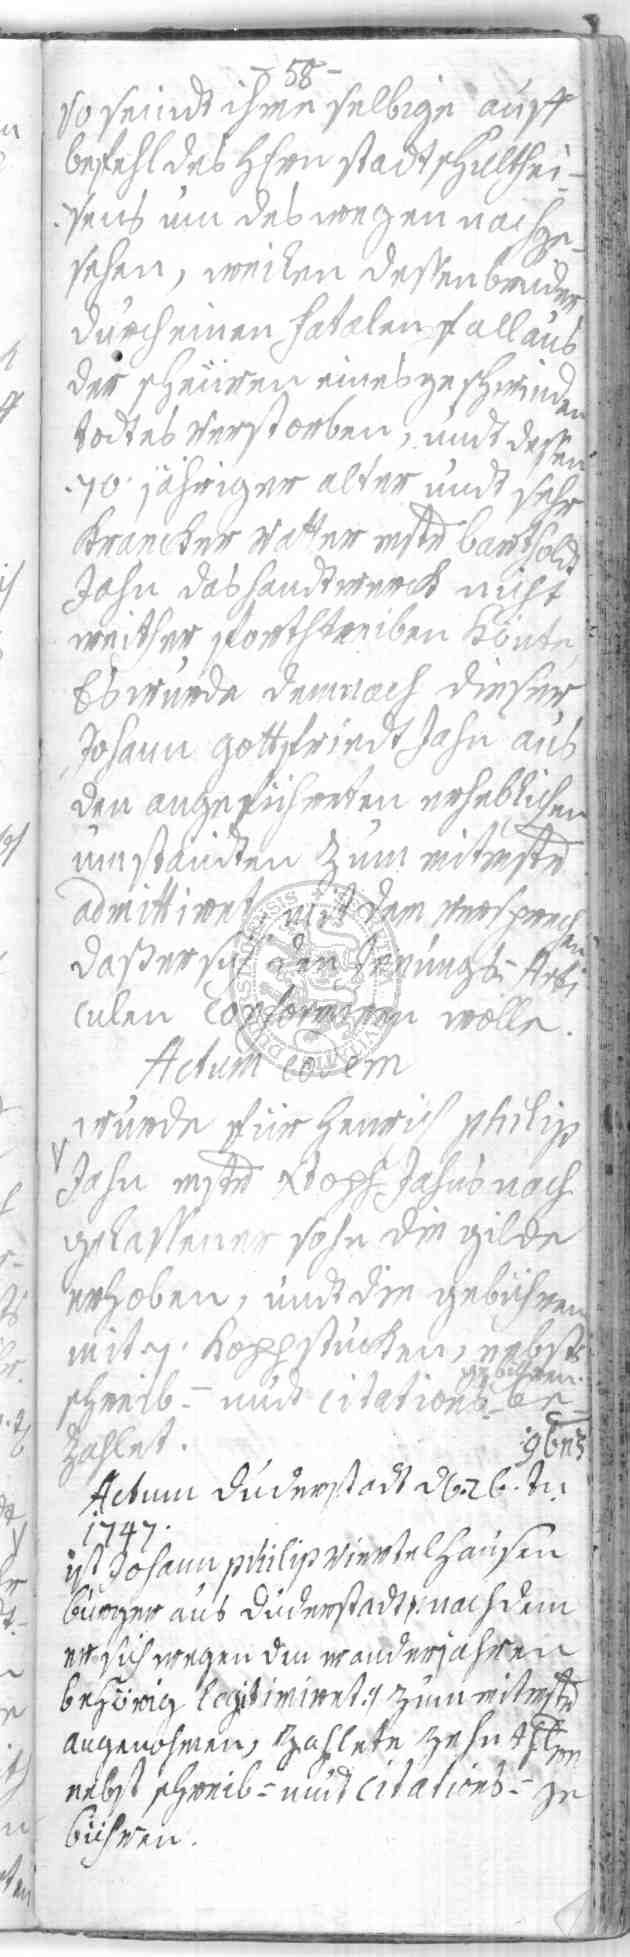 - 58 -
so seindt ihme selbige auff
befehl des H̃rn stadtschulthei-
sens um deswegen nachge-
sehen, weilen dessen bruder
durch einen fatalen fall aus
der scheüren eines geschwinden
todtes verstorben, undt dessen
70 jähriger alter undt sehr
krancker vatter mstr barthold
Jahn das handtwerck nicht
weither forthtreiben könte,
Es wurde demnach dieser
Johann gottfriedt Jahn aus
den angeführten erheblichen
umständten zum mitmstr
admittiret mit dem versprechen
daß er sich den Innungs-Arti
culen conformiren wolle.
Actum eodem
wurde für Henrich philip
Jahn mstr Stoph Jahns nach
gelassener sohn die gilde
erhoben, undt die gebühren
mit 7. koppstücken, nebst
schreib- undt citations-
gebühren be-
zahlet.
Actum duderstadt d 26. 
1747.
ist Johann philip viertelhausen
bürger aus duderstadt, nachdem
er sich wegen der wanderjahren
behörig legitimiret, zum mitmstr
angenohmen, zahlete zehn thlr
nebst schreib- undt citations- ge
bühren.